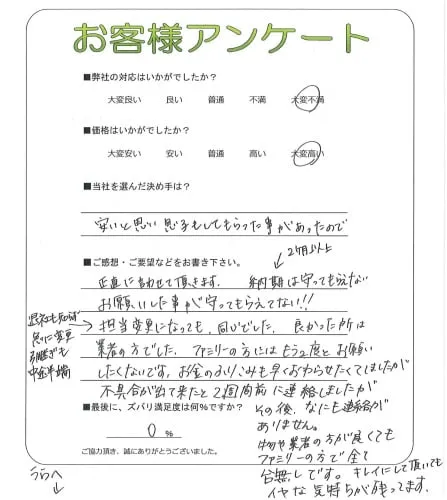 お客様アンケート
■弊社の対応はいかがでしたか?
大変良い 良い 普通 不満 大変不満
■価格はいかがでしたか?
大変安い 安い 普通 高い 大変高い
■当社を選んだ決め手は?
安いと思い 息子もしてもらった事があったので
■ご感想・ご要望などをお書き下さい。
2ヶ月以上
正直に言わせて頂きます。 納期は守ってもらえない
お願いした事が守ってもらえてない!!
退社も知らず
急に変更
引継ぎも
中途半端
担当変更になっても、同じでした。良かった所は
業者の方でした。ファミリーの方にはもう2度とお願い
したくないです。お金のふりこみも早くおわらせたくてしましたが
不具合が出て来たと2週間前に連絡しましたが
■最後に、ズバリ満足度は何%ですか?
0 %
その後、なにも連絡が
ありません。
物や業者の方が良くても
ファミリーの方で全て
台無しです。キレイにして頂いても
イヤな気持ちが残ってます。
ご協力頂き、誠にありがとうございました。
うらへ